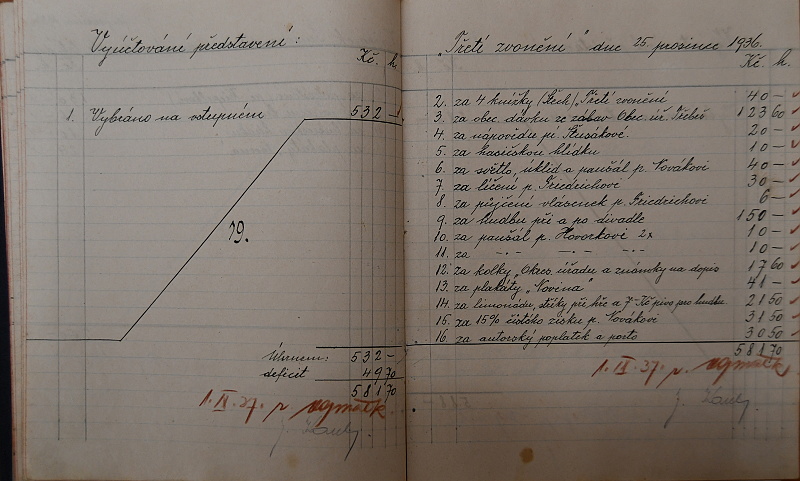 Vyúčtování představení:
Kč. h.
1. Vybráno na vstupném 532 –
19.
Úhrnem: 532 –
deficit 49 70
581 70
1. IX. 37. p.
"Třetí zvonění" dne 25. prosince 1936.
Kč. h.
2. za 4 knížky (Štech) "Třetí zvonění 40 –
3. za obec. dávku ze zábav Obec. úř. Třebeš 123 60
4. za nápovědu pí. 20 –
5. za hasičskou hlídku 10 –
6. za světlo, úklid a paušál p. Novákovi 40 –
7. za líčení p. Friedrichovi 30 –
8. za půjčení vlásenek p. Friedrichovi 6 –
9. za hudbu při a po divadle 150 –
10. za paušál p. Hovorkovi 2x 10 –
11. za –"– –"– –"– 10 –
12. za kolky "Okres. úřadu a známky na dopis 17 60
13. za plakáty "Novina" 41 –
14. za limonádu, při hře a 7 Kč pivo pro hudbu 21 50
15. za 15% čistého zisku p. Novákovi 31 50
16. za autorský poplatek a porto 30 50
581 70
1. IX. 37. p.